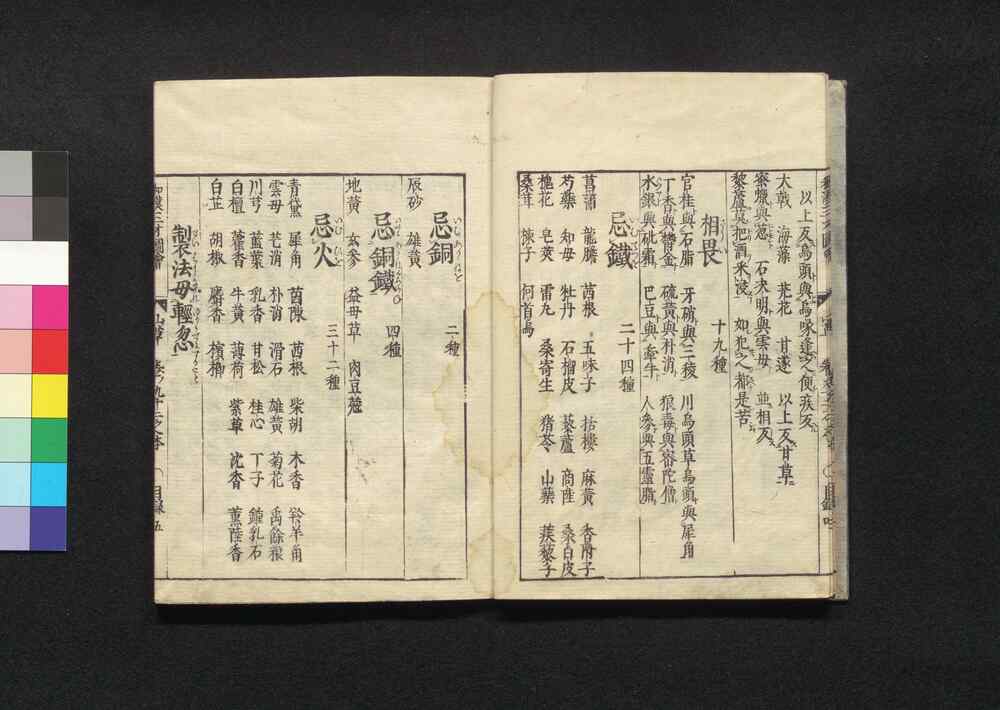 以上反烏頭與烏喙逢之便疾反
大戟 海藻 芫花 甘遂 以上反甘草
蜜蠟與葱 石决明與雲母 並相反
藜蘆莫把酒来浸 如犯之都是苦
相畏
十九種
官桂與石脂 牙硝與三稜 川烏頭草烏頭與犀角
丁香與欝金 硫黄與朴消 狼毒與密陀僧
水銀與砒霜 巴豆與牽牛 人参與五靈脂
忌鐵
二十四種
菖蒲 龍膽 茜根 五味子 括樓 麻黄 香附子
芍藥 知母 牡丹 石榴皮 藜蘆 商陸 桑白皮
槐花 皂莢 雷丸 桑寄生 猪苓 山藥 蒺藜子
桑茸 楝子 何首烏
忌銅
二種
辰砂 雄黄
忌銅鐵
四種
地黄 玄參 益母草 肉豆蔲
忌火
三十二種
青黛 犀角 茵蔯 茜根 柴胡 木香 羚羊角
雲母 芒消 朴消 滑石 雄黄 菊花 禹餘粮
川芎 藍葉 乳香 甘松 桂心 丁子 鍾乳石
白檀 藿香 牛黄 薄荷 紫草 沈香 薫陸香
白芷 胡椒 麝香 檳榔
製法毋輕忽